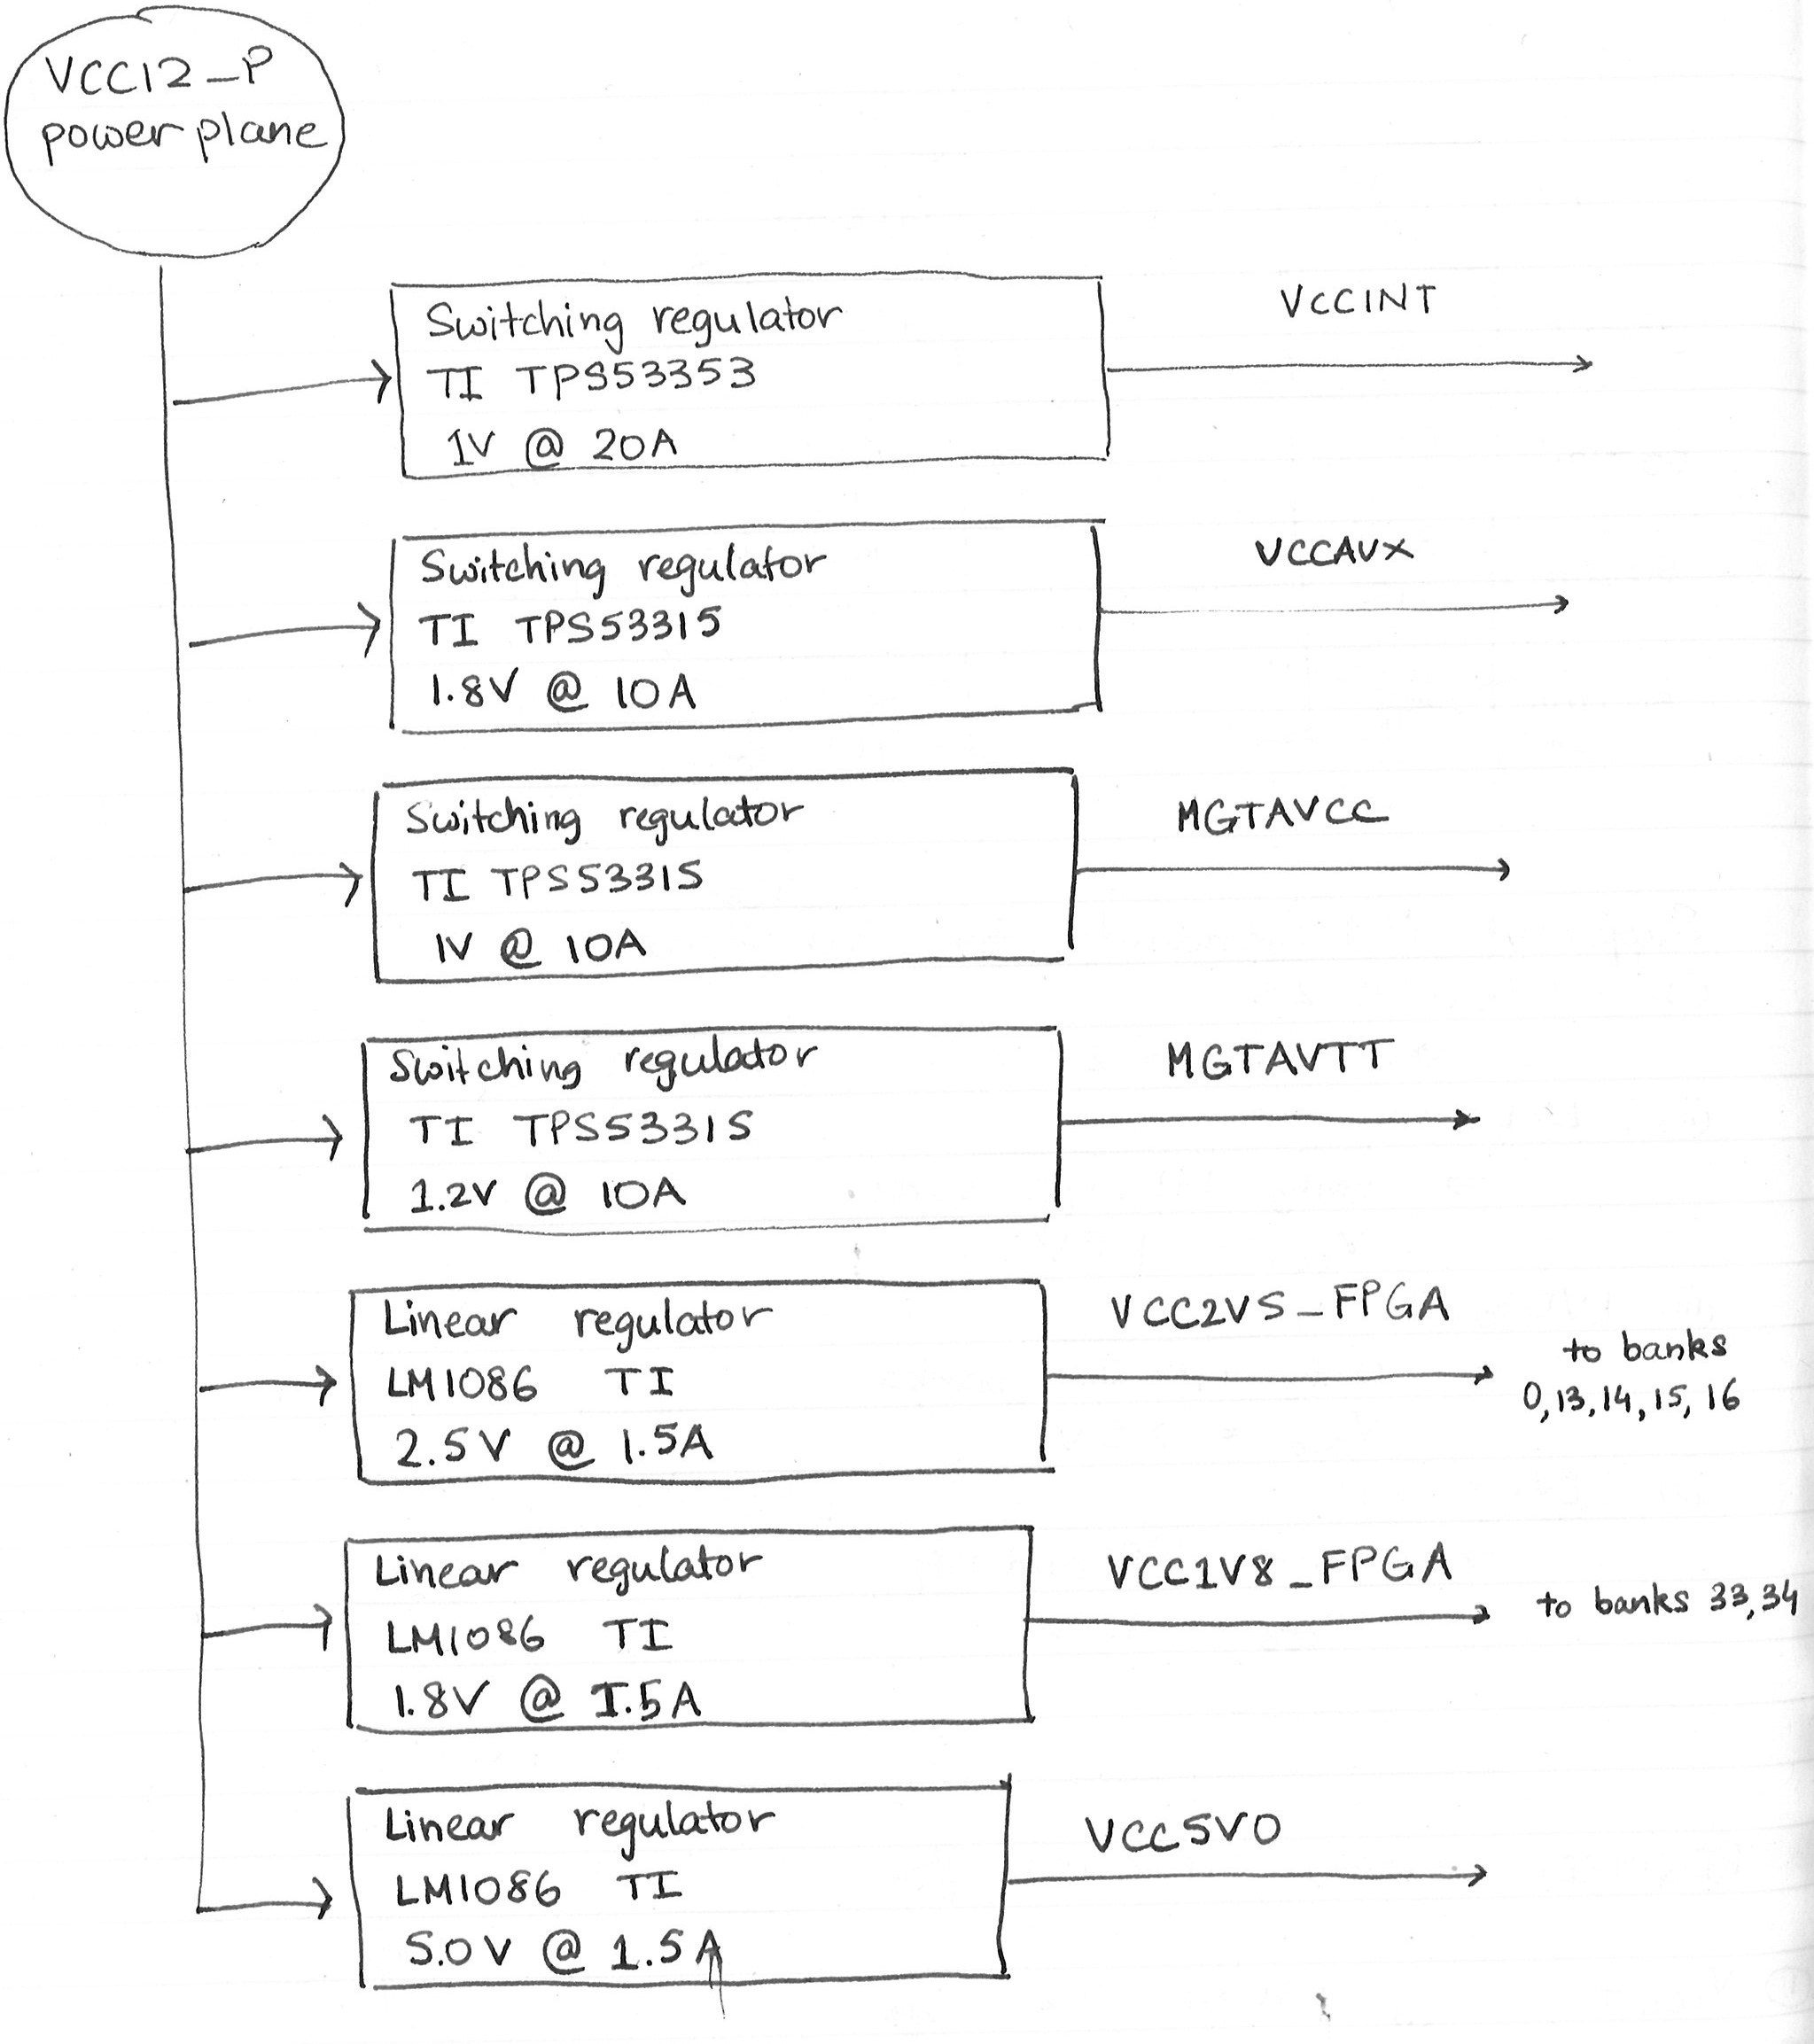 VCC12_P
power plane
Switching regulator
TI TPS53353
1V @ 20A
VCCINT
Switching regulator
TI TPS53315
1.8V @ 10A
VCCAUX
Switching regulator
TI TPS53315
1V @ 10A
MGTAVCC
Switching regulator
TI TPS53315
1.2V @ 10A
MGTAVTT
Linear regulator
LM1086 TI
2.5V @ 1.5A
VCC2V5_FPGA
to banks
0,13,14,15,16
Linear regulator
LM1086 TI
1.8V @ 1.5A
VCC1V8_FPGA
to banks 33,34
Linear regulator
LM1086 TI
5.0V @ 1.5A
VCC5V0